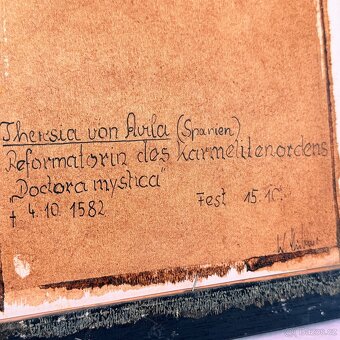 Theresia von Avila (Spanien)
Reformatorin des Karmelitenordens
"Doctora mystica"
† 4.10.1582 Fest 15.10.